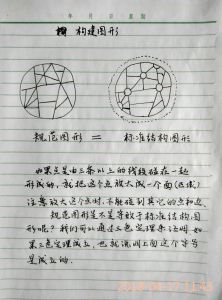 年 月 日 星期
构建图形
规范图形 = 标准结构图形
如果点是由三条以上的线段碰在一起
形成的，就把这个点放大成一个面(区域)
注意放大这个点时，不能碰到其它的点和边。
规范图形是不是等效于标准结构图
形呢？我们可以通过三色定理来证明如
果三色定理成立，也就说明上面这个等号
是成立的.